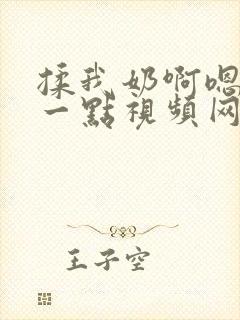 揉我奶啊嗯
一點視頻网
王子空